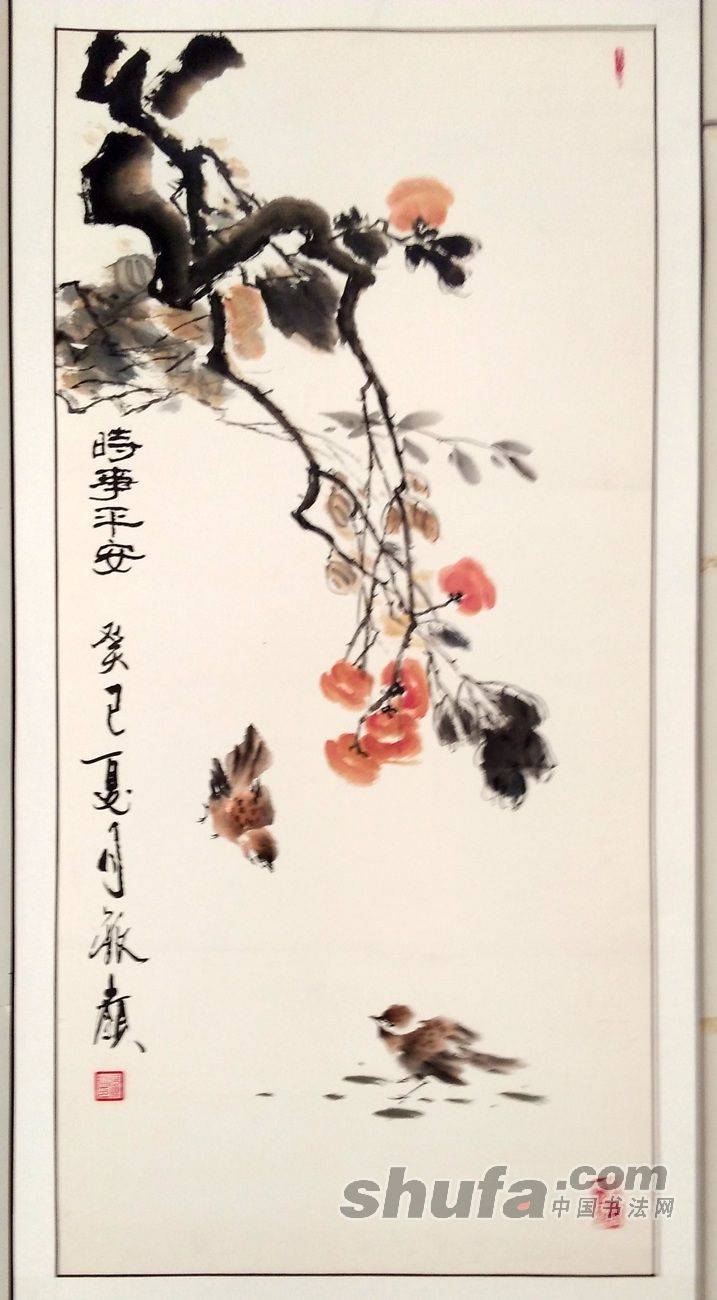 時事平安
癸巳夏月
shufa.com
中国书法网